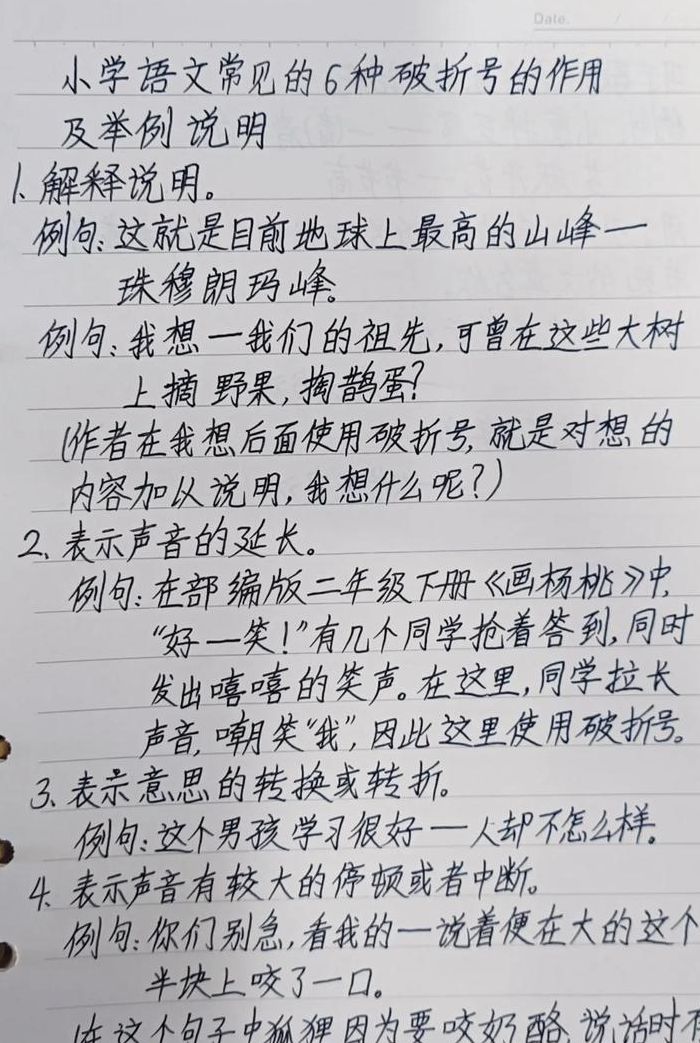 Date.
小学语文常见的6种破折号的作用
及举例说明
1、解释说明。
例句:这就是目前地球上最高的山峰——
珠穆朗玛峰。
例句:我想——我们的祖先,可曾在这些大树
上摘野果,掏鹊蛋?
(作者在我想后面使用破折号,就是对想的
内容加以说明,我想什么呢?)
2、表示声音的延长。
例句:在部编版二年级下册《画杨桃》中,
“好——笑!”有几个同学抢着答到,同时
发出嘻嘻的笑声。在这里,同学拉长
声音,嘲笑“我”,因此这里使用破折号。
3、表示意思的转换或转折。
例句:这个男孩学习很好——人却不怎么样。
4、表示声音有较大的停顿或者中断。
例句:你们别急,看我的——说着便在大的这个
半块上咬了一口。
(在这个句子中狐狸因为要咬奶酪,说话时